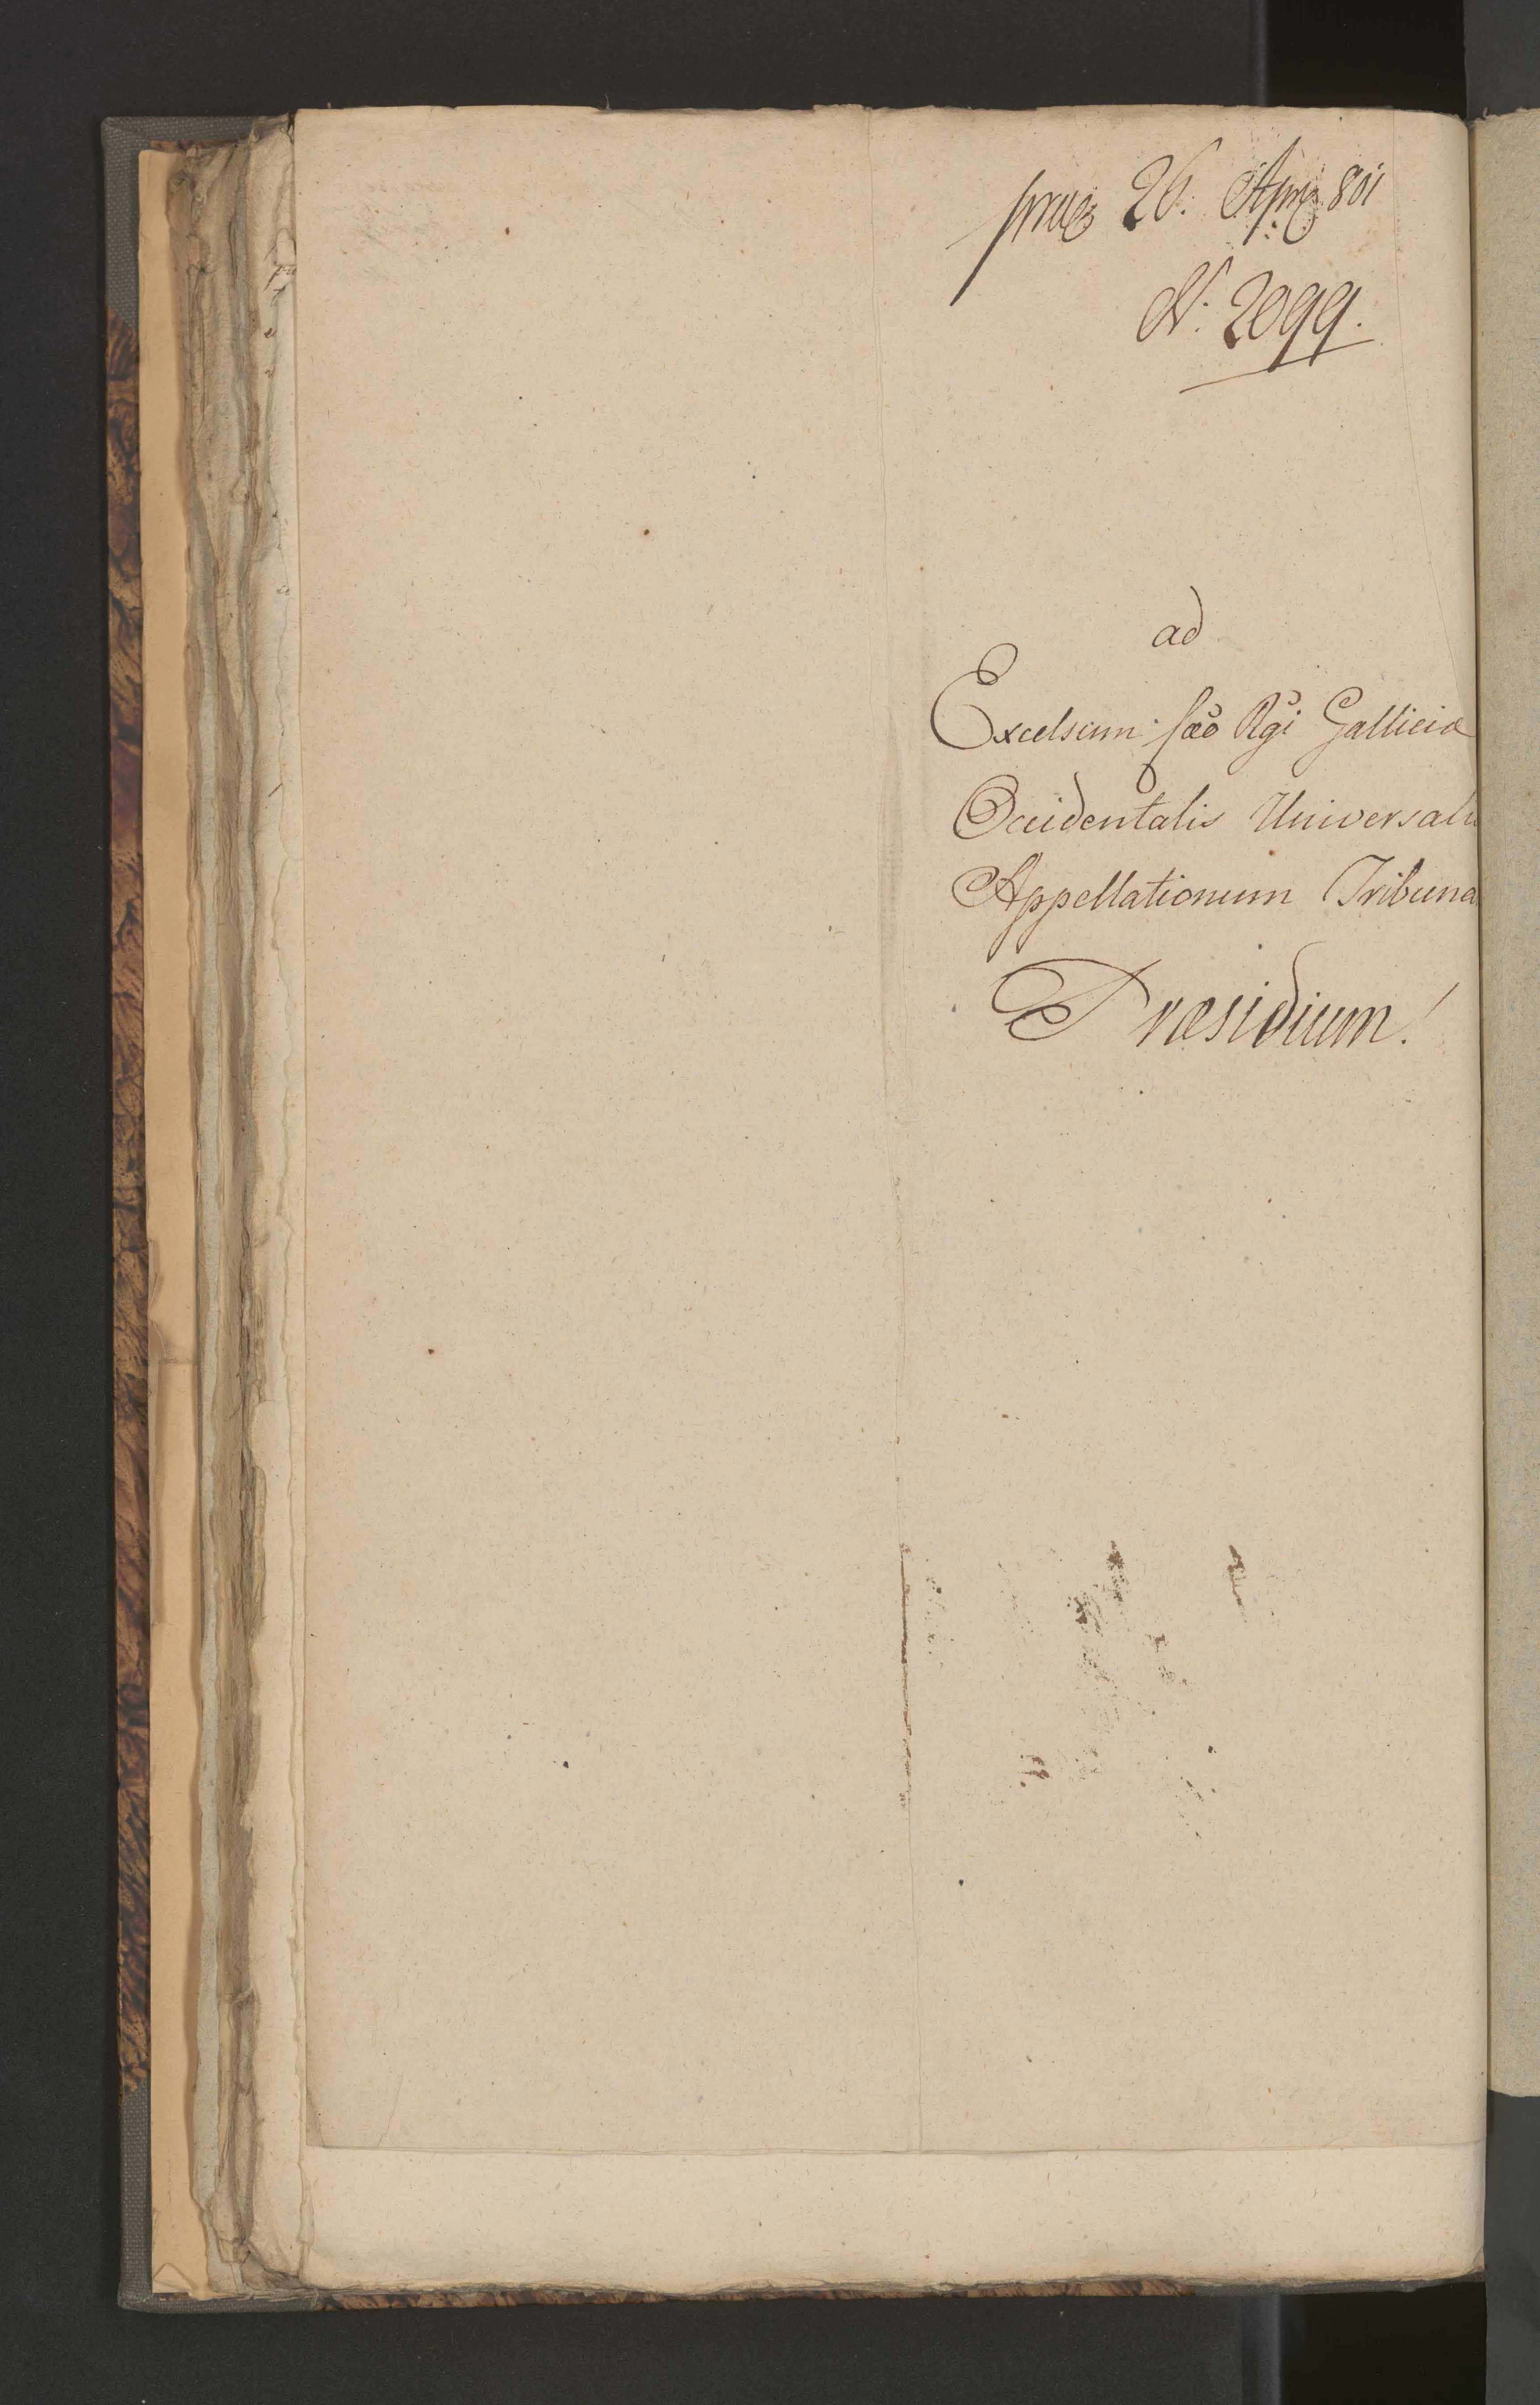 praes 26. Apr. 801
N. 2099.
ad
Excelsum Cæo Rgi Galliciæ
Occidentalis Universale
Appellationum Tribuna
Præsidium!